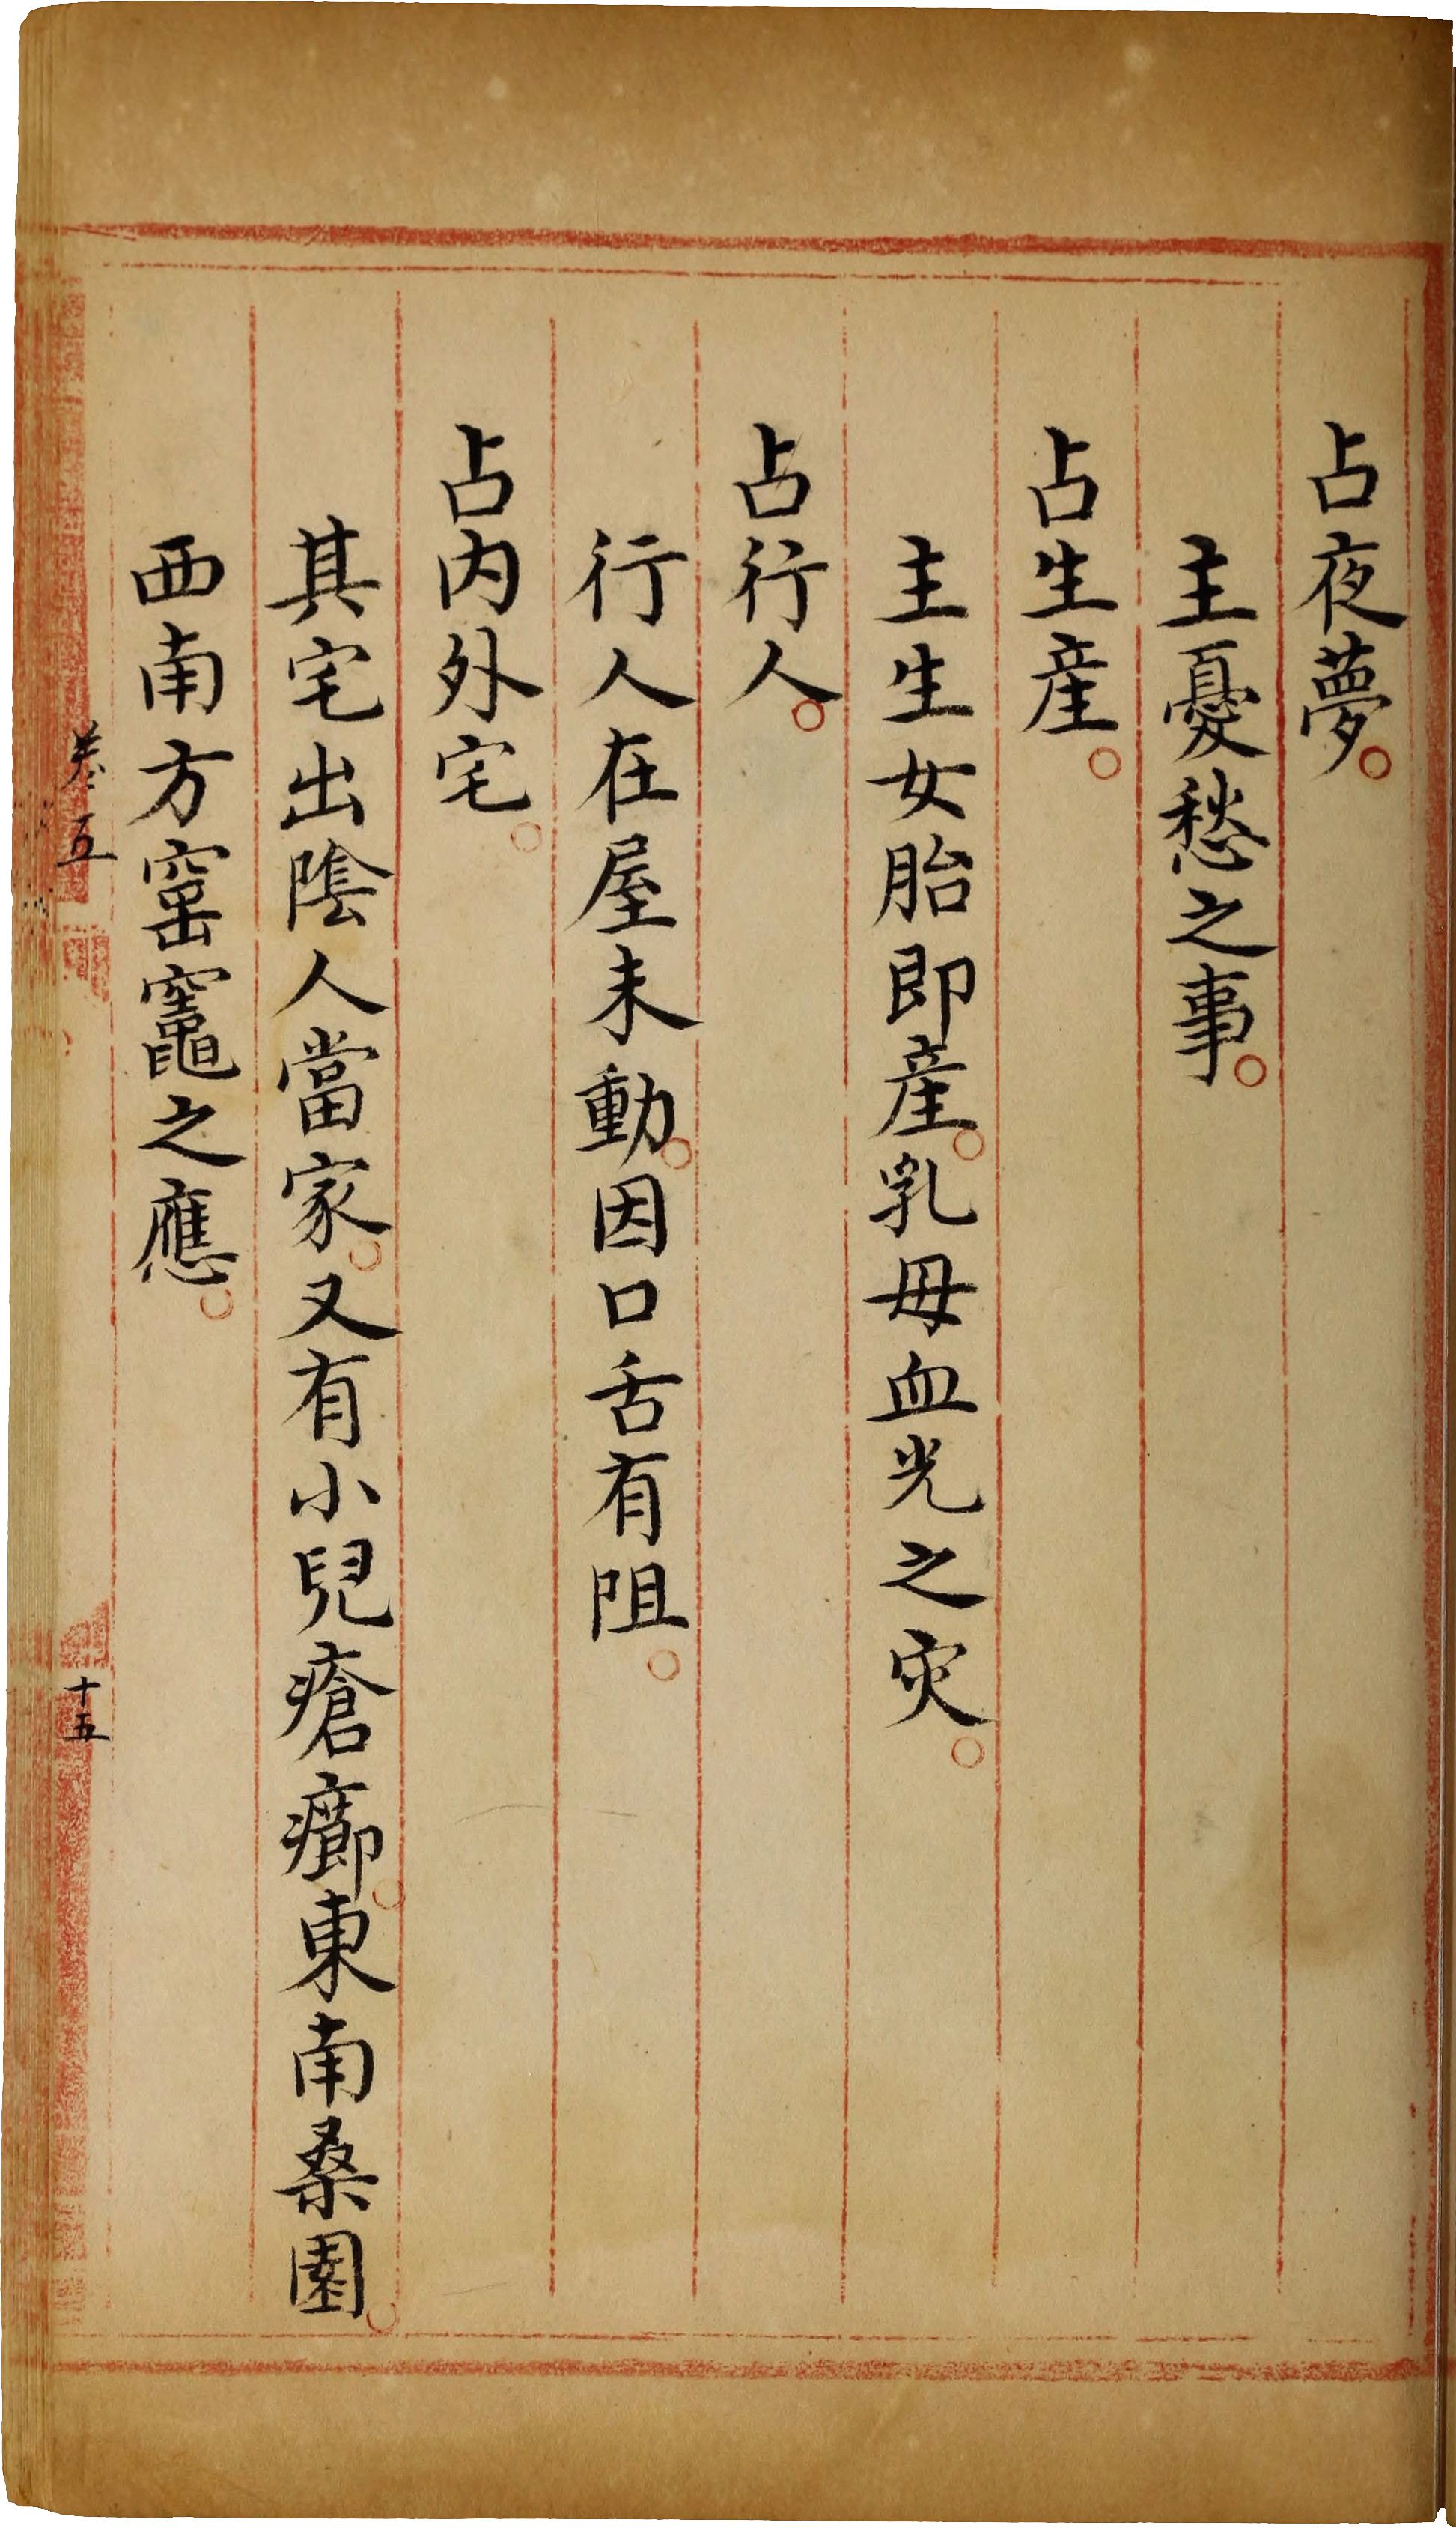 占夜夢。
主憂愁之事。
占生産。
主生女胎即産。乳母血光之灾。
占行人。
行人在屋未動。因口舌有阻。
占内外宅。
其宅出陰人當家。又有小兒瘡癤。東南桑園。
西南方窰竈之應。
卷五
十五